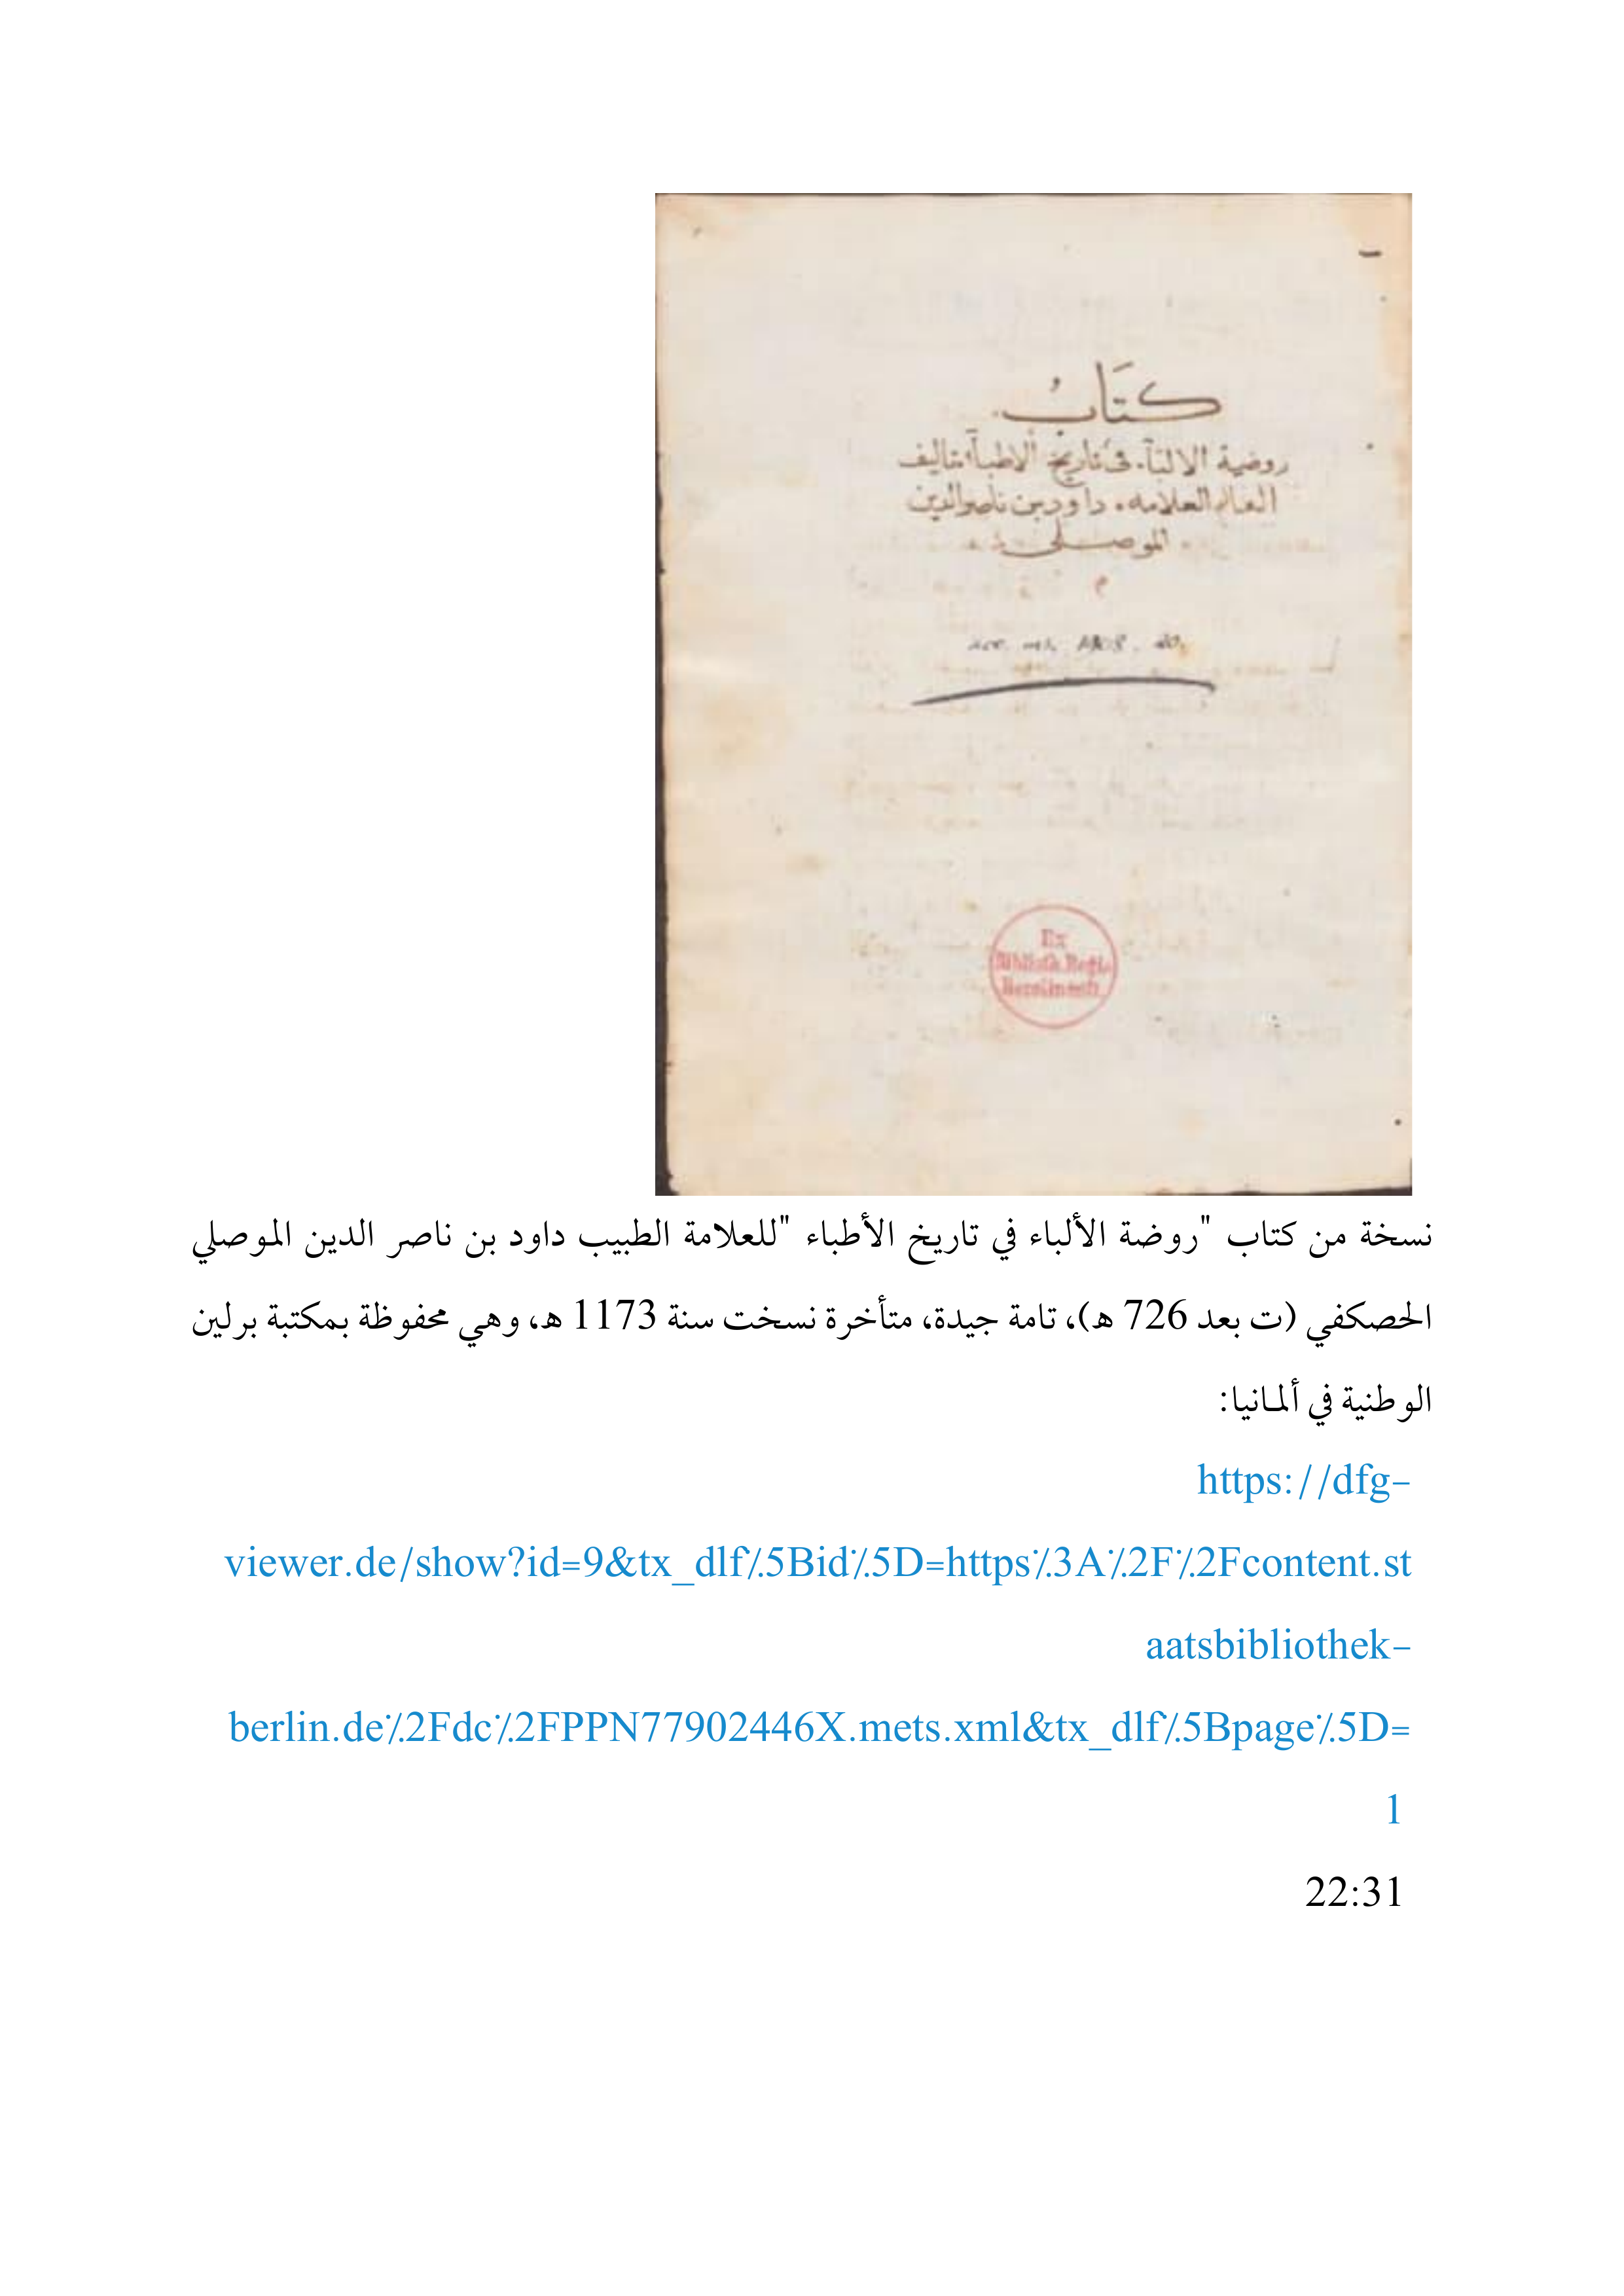 كتابُ
روضة الالبآء فى تاريخ الاطبآء تاليف
العالم العلامه . داود بن ناصر الدين
الموصلى
م
acc. ms. 1908. 20.
Ex
Biblioth. Regia
Berolinensi
نسخة من كتاب "روضة الألباء في تاريخ الأطباء "للعلامة الطبيب داود بن ناصر الدين الموصلي
الحصكفي (ت بعد 726 ه)، تامة جيدة، متأخرة نسخت سنة 1173 ه، وهي محفوظة بمكتبة برلين
الوطنية في ألمانيا:
https://dfg-
viewer.de/show?id=9&tx_dlf%5Bid%5D=https%3A%2F%2Fcontent.st
aatsbibliothek-
berlin.de%2Fdc%2FPPN77902446X.mets.xml&tx_dlf%5Bpage%5D=
1
22:31